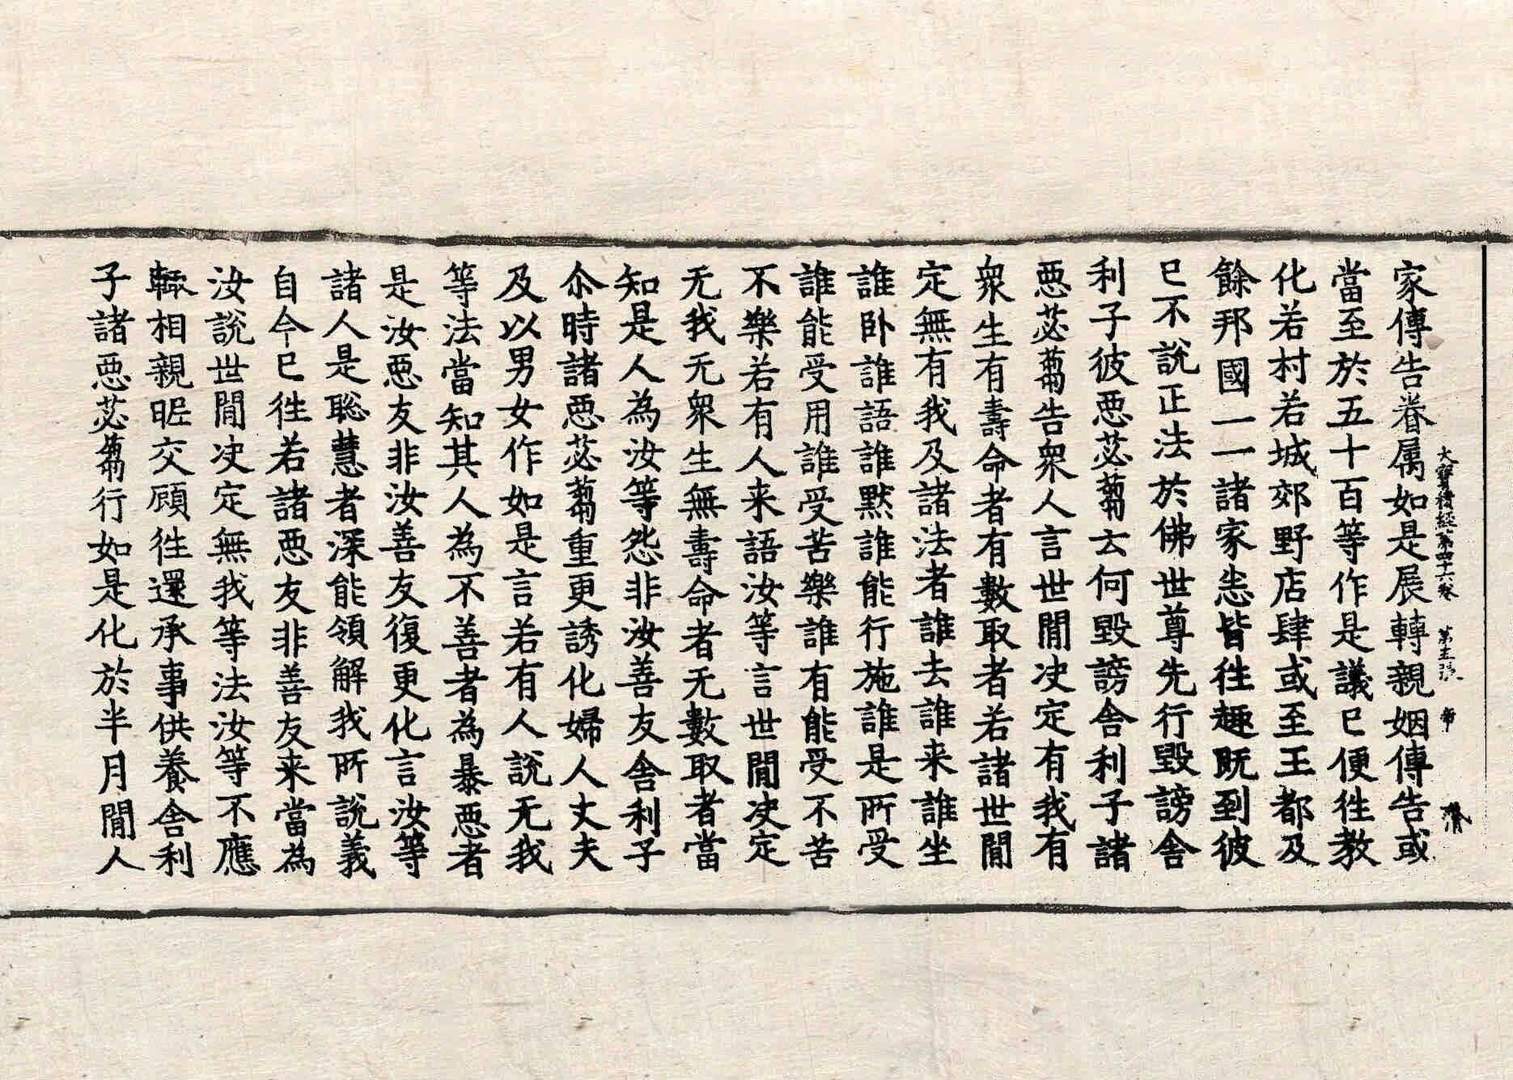 大寶積經第四十六卷 第五張 帝
家傳告眷属如是展轉親姻傳告或
當至於五十百等作是議已便往教
化若村若城郊野店肆或至王都及
餘邦國一一諸家悉皆往趣既到彼
已不說正法於佛世尊先行毀謗舍
利子彼惡苾蒭云何毀謗舍利子諸
惡苾蒭告衆人言世間决定有我有
衆生有壽命者有數取者若諸世間
定無有我及諸法者誰去誰来誰坐
誰卧誰語誰默誰能行施誰是所受
誰能受用誰受苦樂誰有能受不苦
不樂若有人来語汝等言世間决定
无我无衆生無壽命者无數取者當
知是人為汝等怨非汝善友舍利子
尒時諸惡苾蒭重更誘化婦人丈夫
及以男女作如是言若有人說无我
等法當知其人為不善者為暴惡者
是汝惡友非汝善友復更化言汝等
諸人是聡慧者深能領解我所說義
自今已往若諸惡友非善友来當為
汝說世間决定無我等法汝等不應
輙相親昵交顧往還承事供養舍利
子諸惡苾蒭行如是化於半月間人